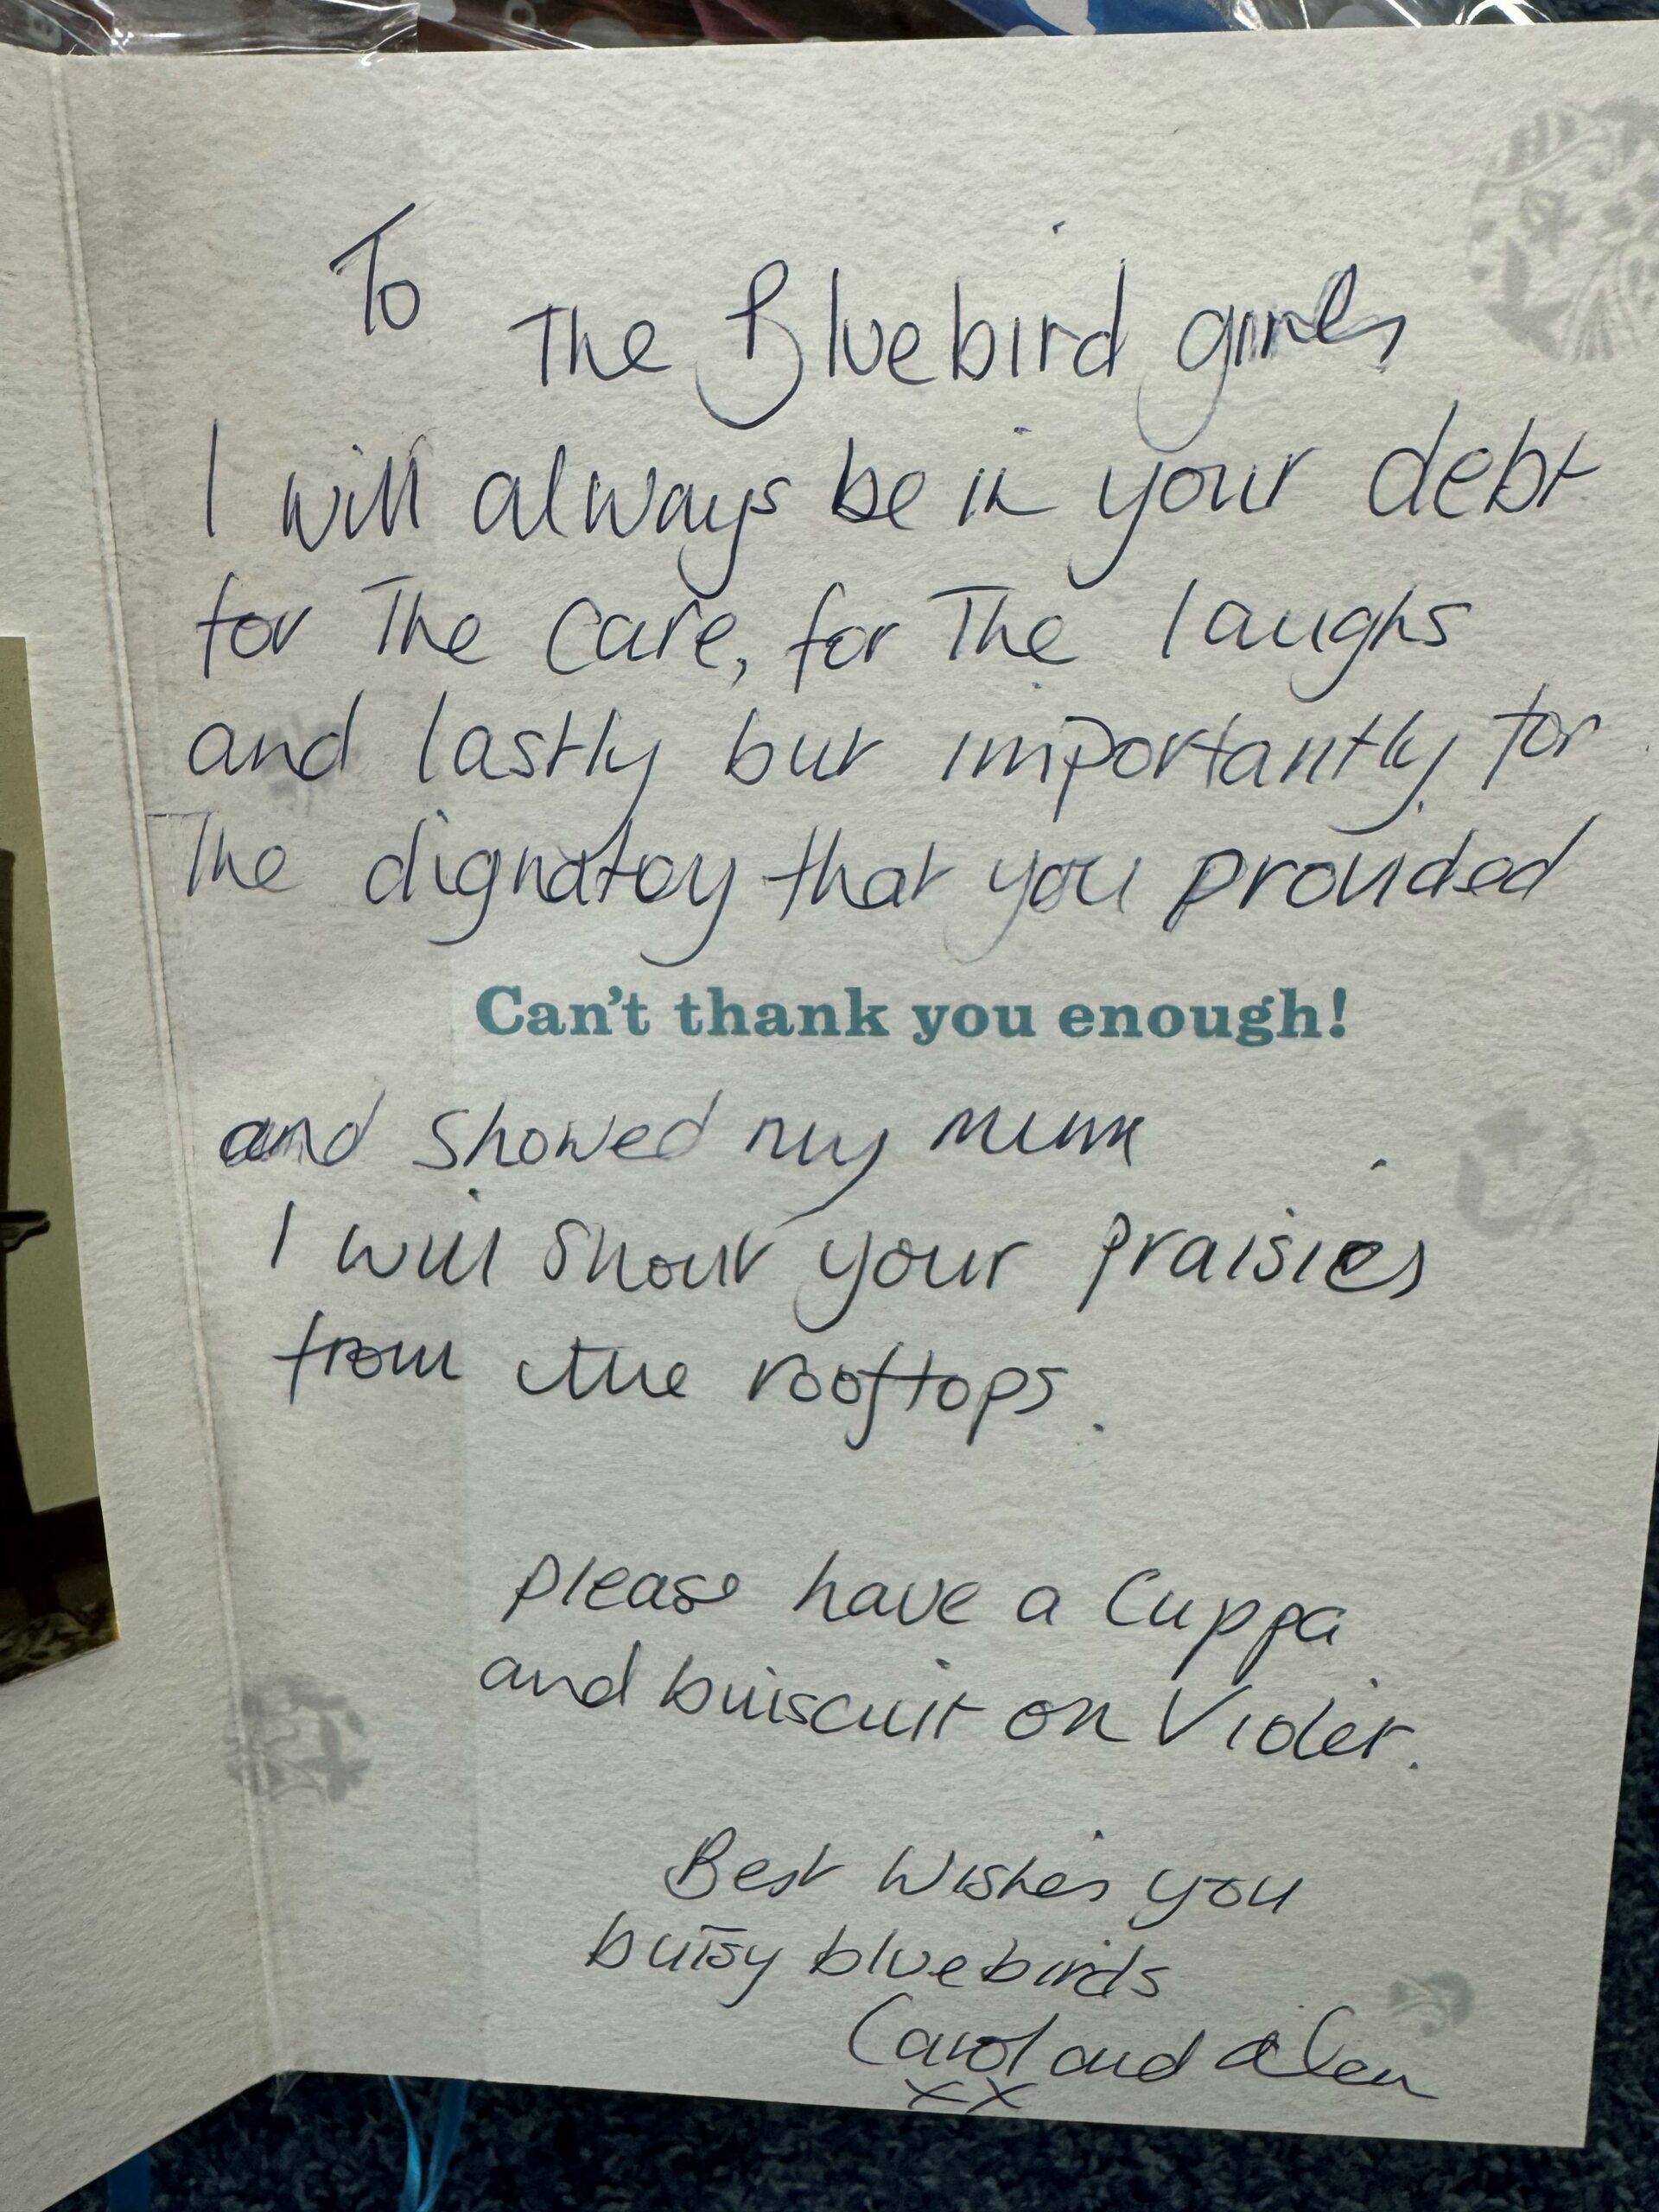 To
The Bluebird girls
I will always be in your debt
for The care, for The laughs
and lastly but importantly for
The dignatey that you provided
Can't thank you enough!
and showed my mum
I will shout your praisies
from the rooftops.
please have a Cuppa
and buiscuit on Violet.
Best Wishes you
buisy bluebirds
Carol and alan
xx